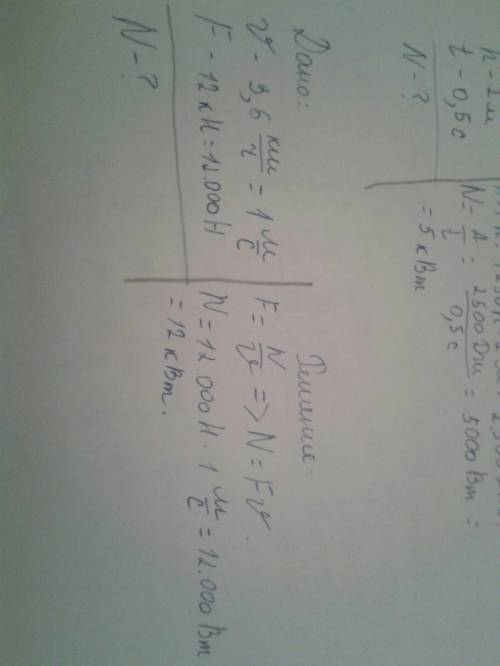 h - 2 м
t - 0,5 с
N - ?
N = A/t = 2500 Дж/0,5 с = 5000 Вт =
= 5 кВт
Дано:
V - 3,6 км/ч = 1 м/с
F - 12 кН = 12.000 Н
N - ?
Решение.
F = N/V => N = FV.
N = 12.000 Н · 1 м/с = 12.000 Вт
= 12 кВт.